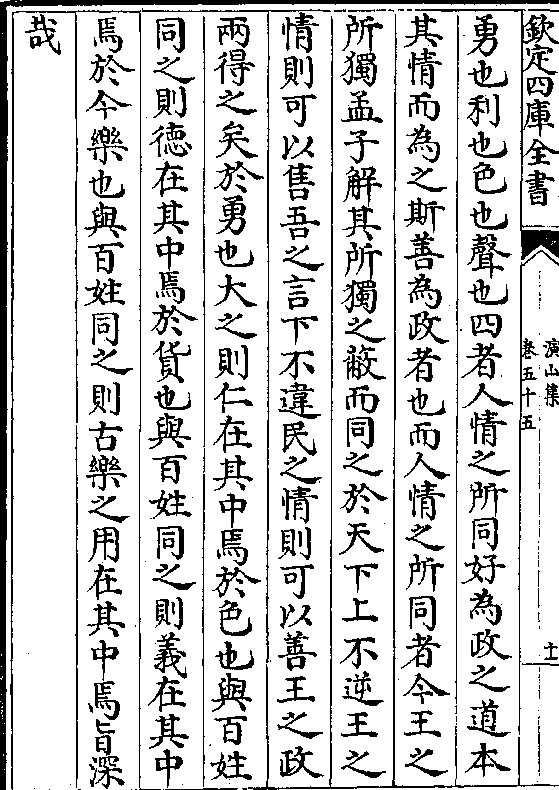 欽定四庫全書
演山集
卷五十五
十
勇也利也色也聲也四者人情之所同好為政之道本
其情而為之斯善為政者也而人情之所同者今王之
所獨孟子解其所獨之蔽而同之於天下上不逆王之
情則可以售吾之言下不違民之情則可以善王之政
兩得之矣於勇也大之則仁在其中焉於色也與百姓
同之則德在其中焉於貨也與百姓同之則義在其中
焉於今樂也與百姓同之則古樂之用在其中焉旨深
哉